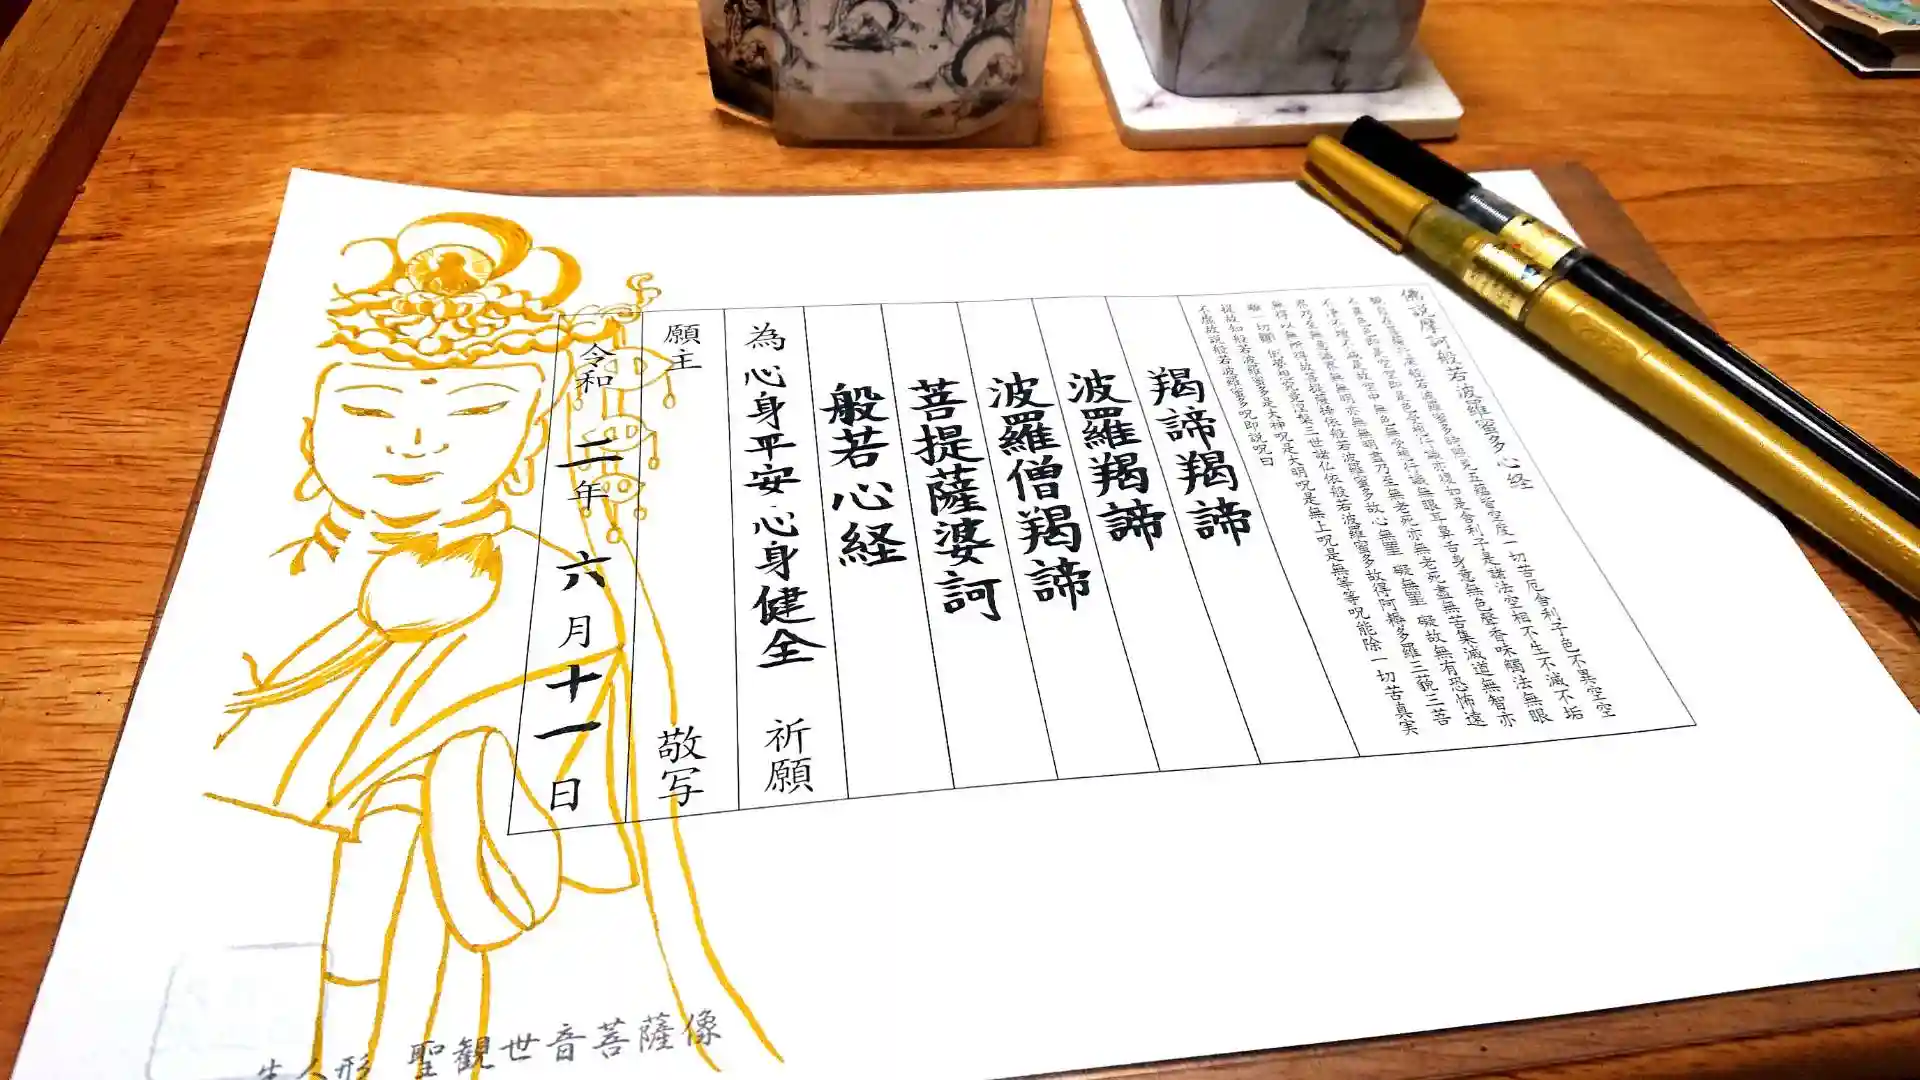 佛説摩訶般若波羅蜜多心経
観自在菩薩行深般若波羅蜜多時照見五蘊皆空度一切苦厄舎利子色不異空空
不異色色即是空空即是色受想行識亦復如是舎利子是諸法空相不生不滅不垢
不浄不増不減是故空中無色無受想行識無眼耳鼻舌身意無色聲香味觸法無眼
界乃至無意識界無無明亦無無明盡乃至無老死亦無老死盡無苦集滅道無智亦
無得以無所得故菩提薩埵依般若波羅蜜多故心無罣礙無罣礙故無有恐怖遠
離一切顛倒夢想究竟涅槃三世諸仏依般若波羅蜜多故得阿耨多羅三藐三菩
提故知般若波羅蜜多是大神呪是大明呪是無上呪是無等等呪能除一切苦真実
不虚故説般若波羅蜜多呪即説呪曰
羯諦羯諦
波羅羯諦
波羅僧羯諦
菩提薩婆訶
般若心経
為心身平安心身健全 祈願
願主 敬写
令和二年六月十一日
生人形 聖観世音菩薩像